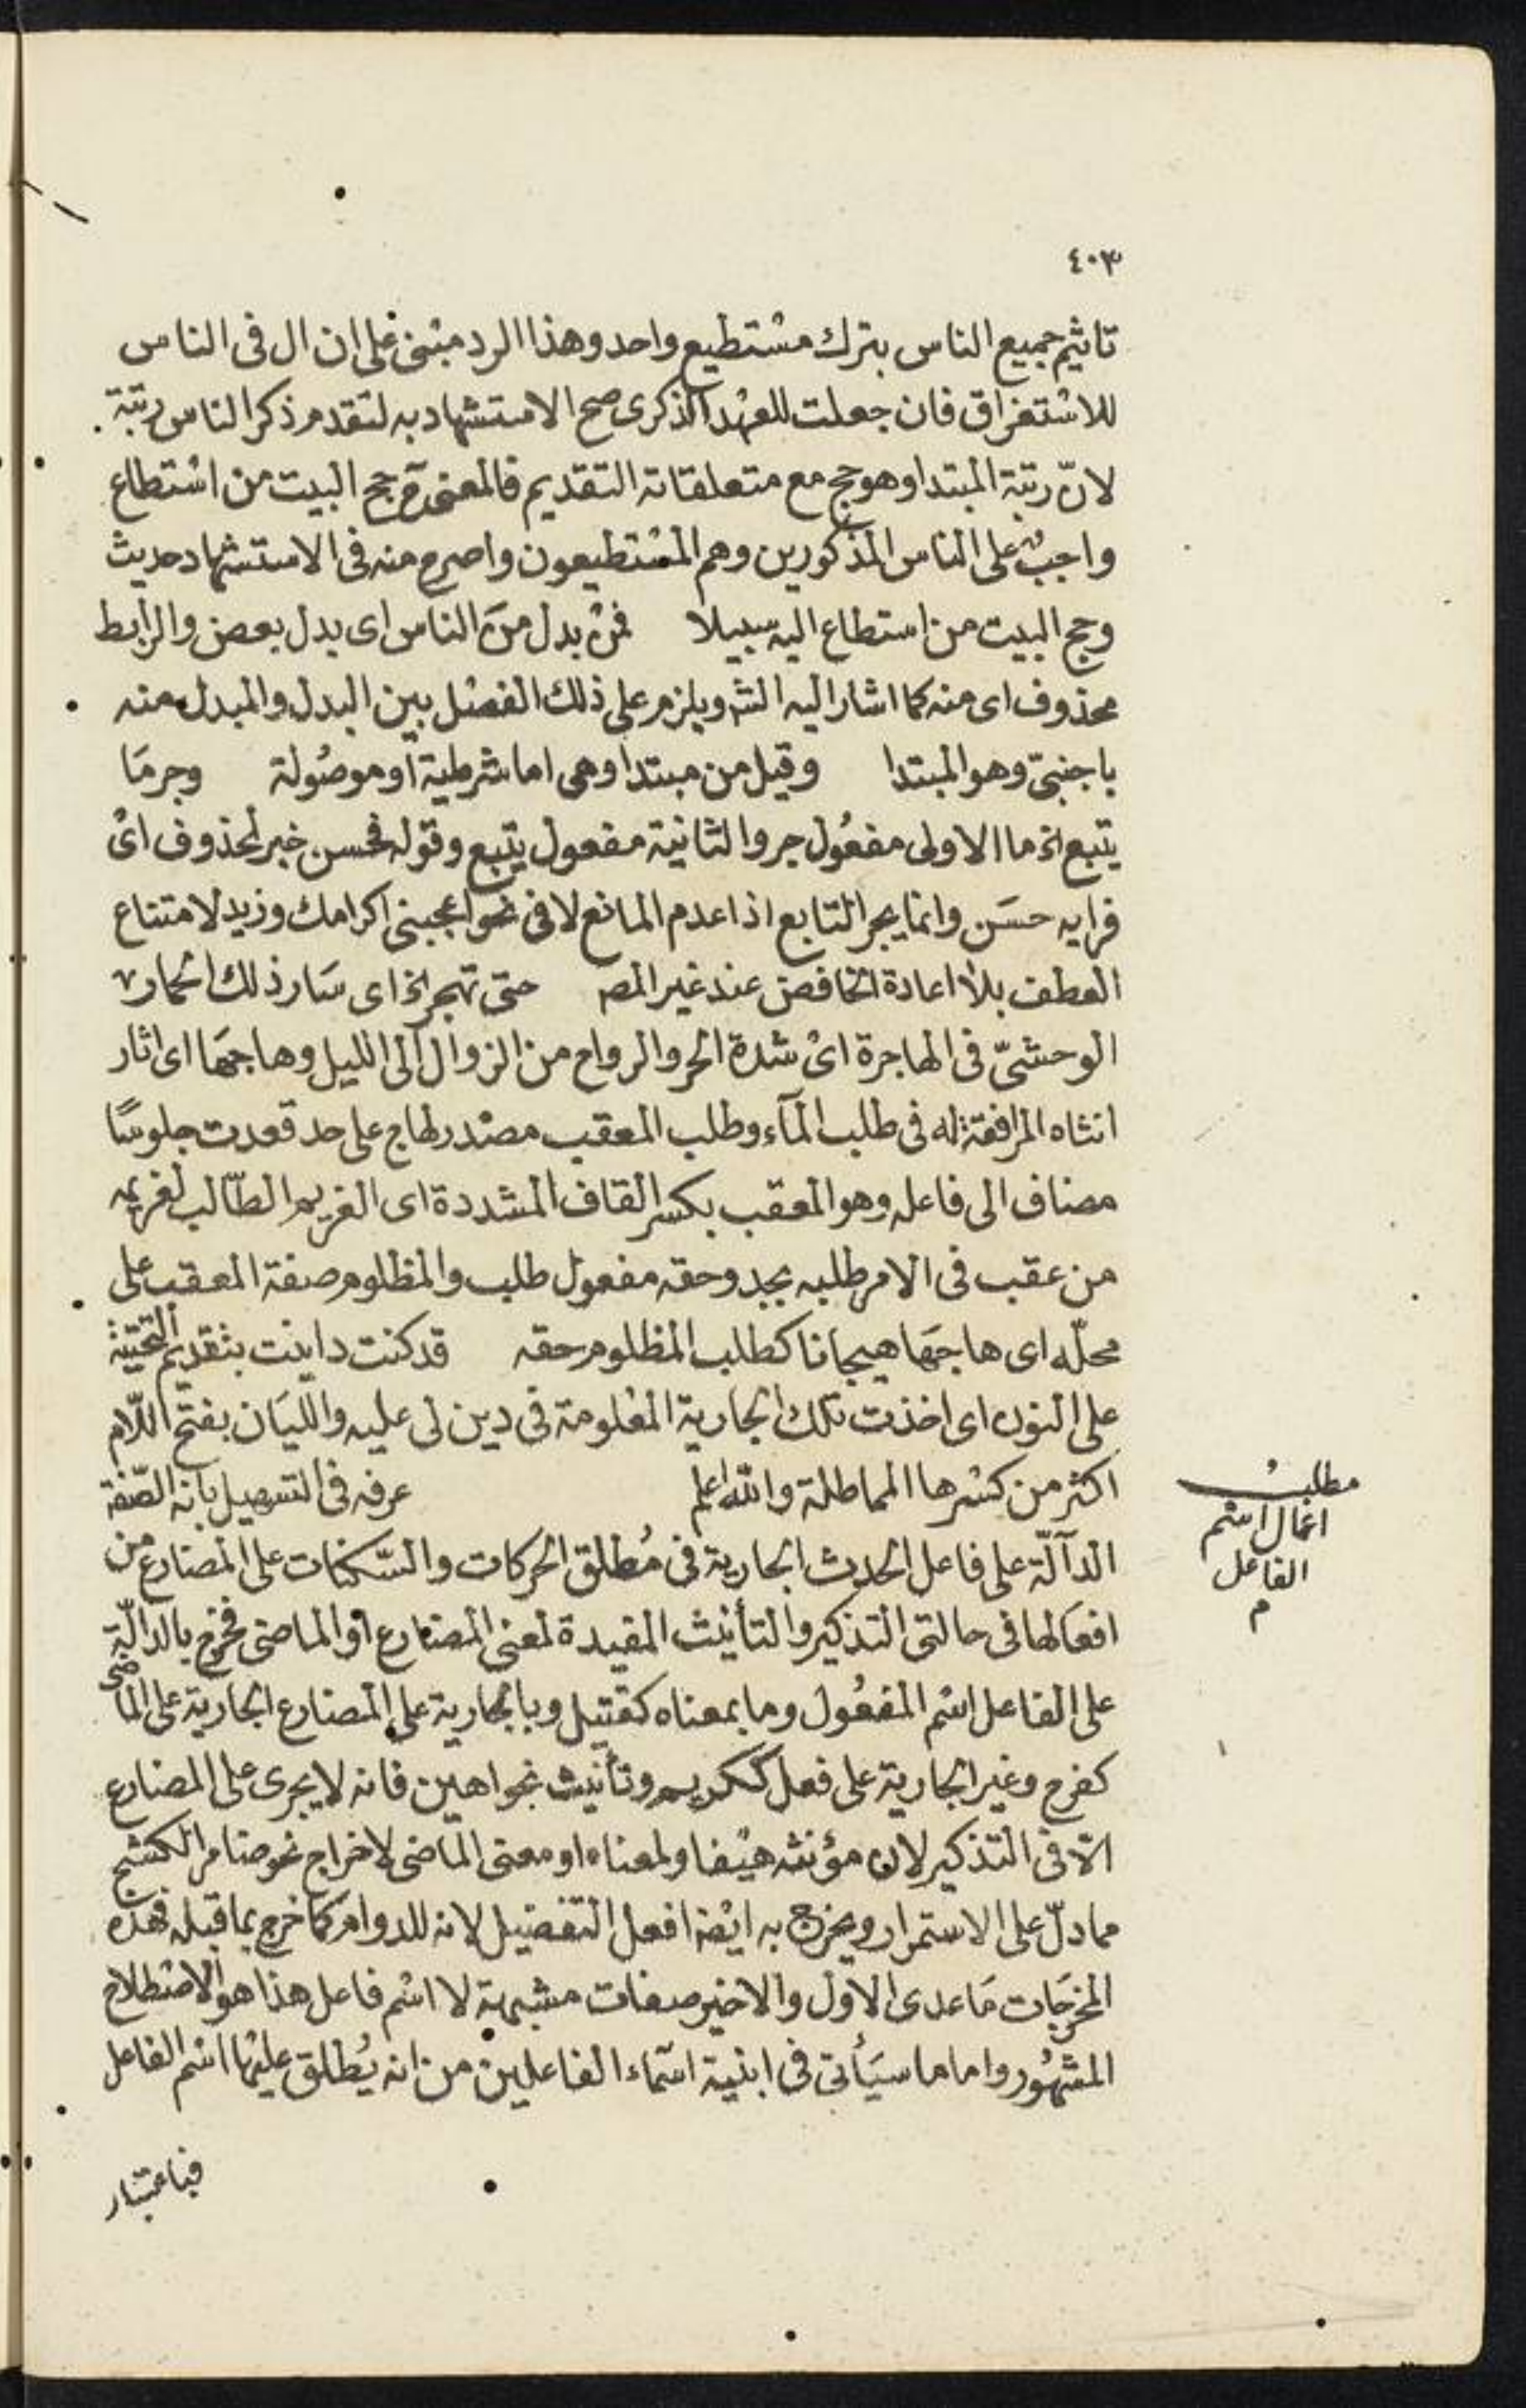 ٤٠٣
تاثيم جميع الناس بترك مستطيع واحد وهذا الرد مبنى على ان ال فى الناس
للاستغراق فان جعلت للعهد الذكرى صح الاستشهاد به لتقدم ذكر الناس رتبة
لان رتبة المبتدا وهو حج مع متعلقاته التقديم فالمعنى ح حج البيت من استطاع
واجب على الناس المذكورين وهم المستطيعون واصرح منه فى الاستشهاد حديث
وحج البيت من استطاع اليه سبيلا فمن بدل من الناس اى بدل بعض والرابط
محذوف اى منه كما اشار اليه الش ويلزم على ذلك الفصل بين البدل والمبدل منه
باجنبىّ وهو المبتدا وقيل من مبتدا وهى اما شرطية او موصولة وجر مَا
يتبع الخ ما الاولى مفعُول جر والثانية مفعول يتبع وقوله فحسن خبر لمحذوف اى
فرايه حسَن وانما يجر التابع اذا عدم المانع لا فى نحو اعجبنى اكرامك وزيد لامتناع
العطف بلا اعادة الخافض عند غير المص حتى تهجر الخ اى سَار ذلك الحمار
الوحشىّ فى الهاجرة اى شدة الحر والرواح من الزوال الى الليل وهاجهَا اى اثار
انثاه المرافقة له فى طلب المآء وطلب المعقب مصدر لهاج على حد قعدت جلوسًا
مضاف الى فاعله وهو المعقب بكسر القاف المشددة اى الغريم الطّالب لغريمه
من عقب فى الامر طلبه بجد وحقه مفعول طلب والمظلوم صفة المعقب على
محلّه اى هاجهَا هيجانا كطلب المظلوم حقه قد كنت داينت بتقديم التحتية
على النون اى اخذت تلك الجارية المعلومة فى دين لى عليه والليَان بفتح اللّام
اكثر من كسرها المماطلة والله اعلم عرفه فى التسهيل بانه الصّفة
مطلب
اعمال اسم
الفاعل
م
الدآلّة على فاعل الحدث الجارية فى مُطلق الحركات والسّكنات على المضارع من
افعَالها فى حالتى التذكير والتأنيث المفيدة لمعنى المضارع او الماضى فخرج بالدالّة
على الفاعل اسم المفعُول وما بمعناه كقتيل وبالجارية على المضارع الجارية على الماضى
كفرح وغير الجارية على فعل ككريم وتأنيث نحو اهيف فانه لا يجرى على المضارع
الّا فى التذكير لان مؤنثه هيفا ولمعناه او معنى الماضى لاخراج نحو ضامر الكشح
مما دلّ على الاستمرار ويخرج به ايضا افعل التفضيل لانه للدوام كما خرج بما قبله فهذه
المخرجَات مَا عدى الاول والاخير صفات مشبهة لا اسم فاعل هذا هو الاصطلاح
المشهُور واما ما سيَأتى فى ابنية اسمَاء الفاعلين من انه يُطلق عليها اسم الفاعل
فباعتبار